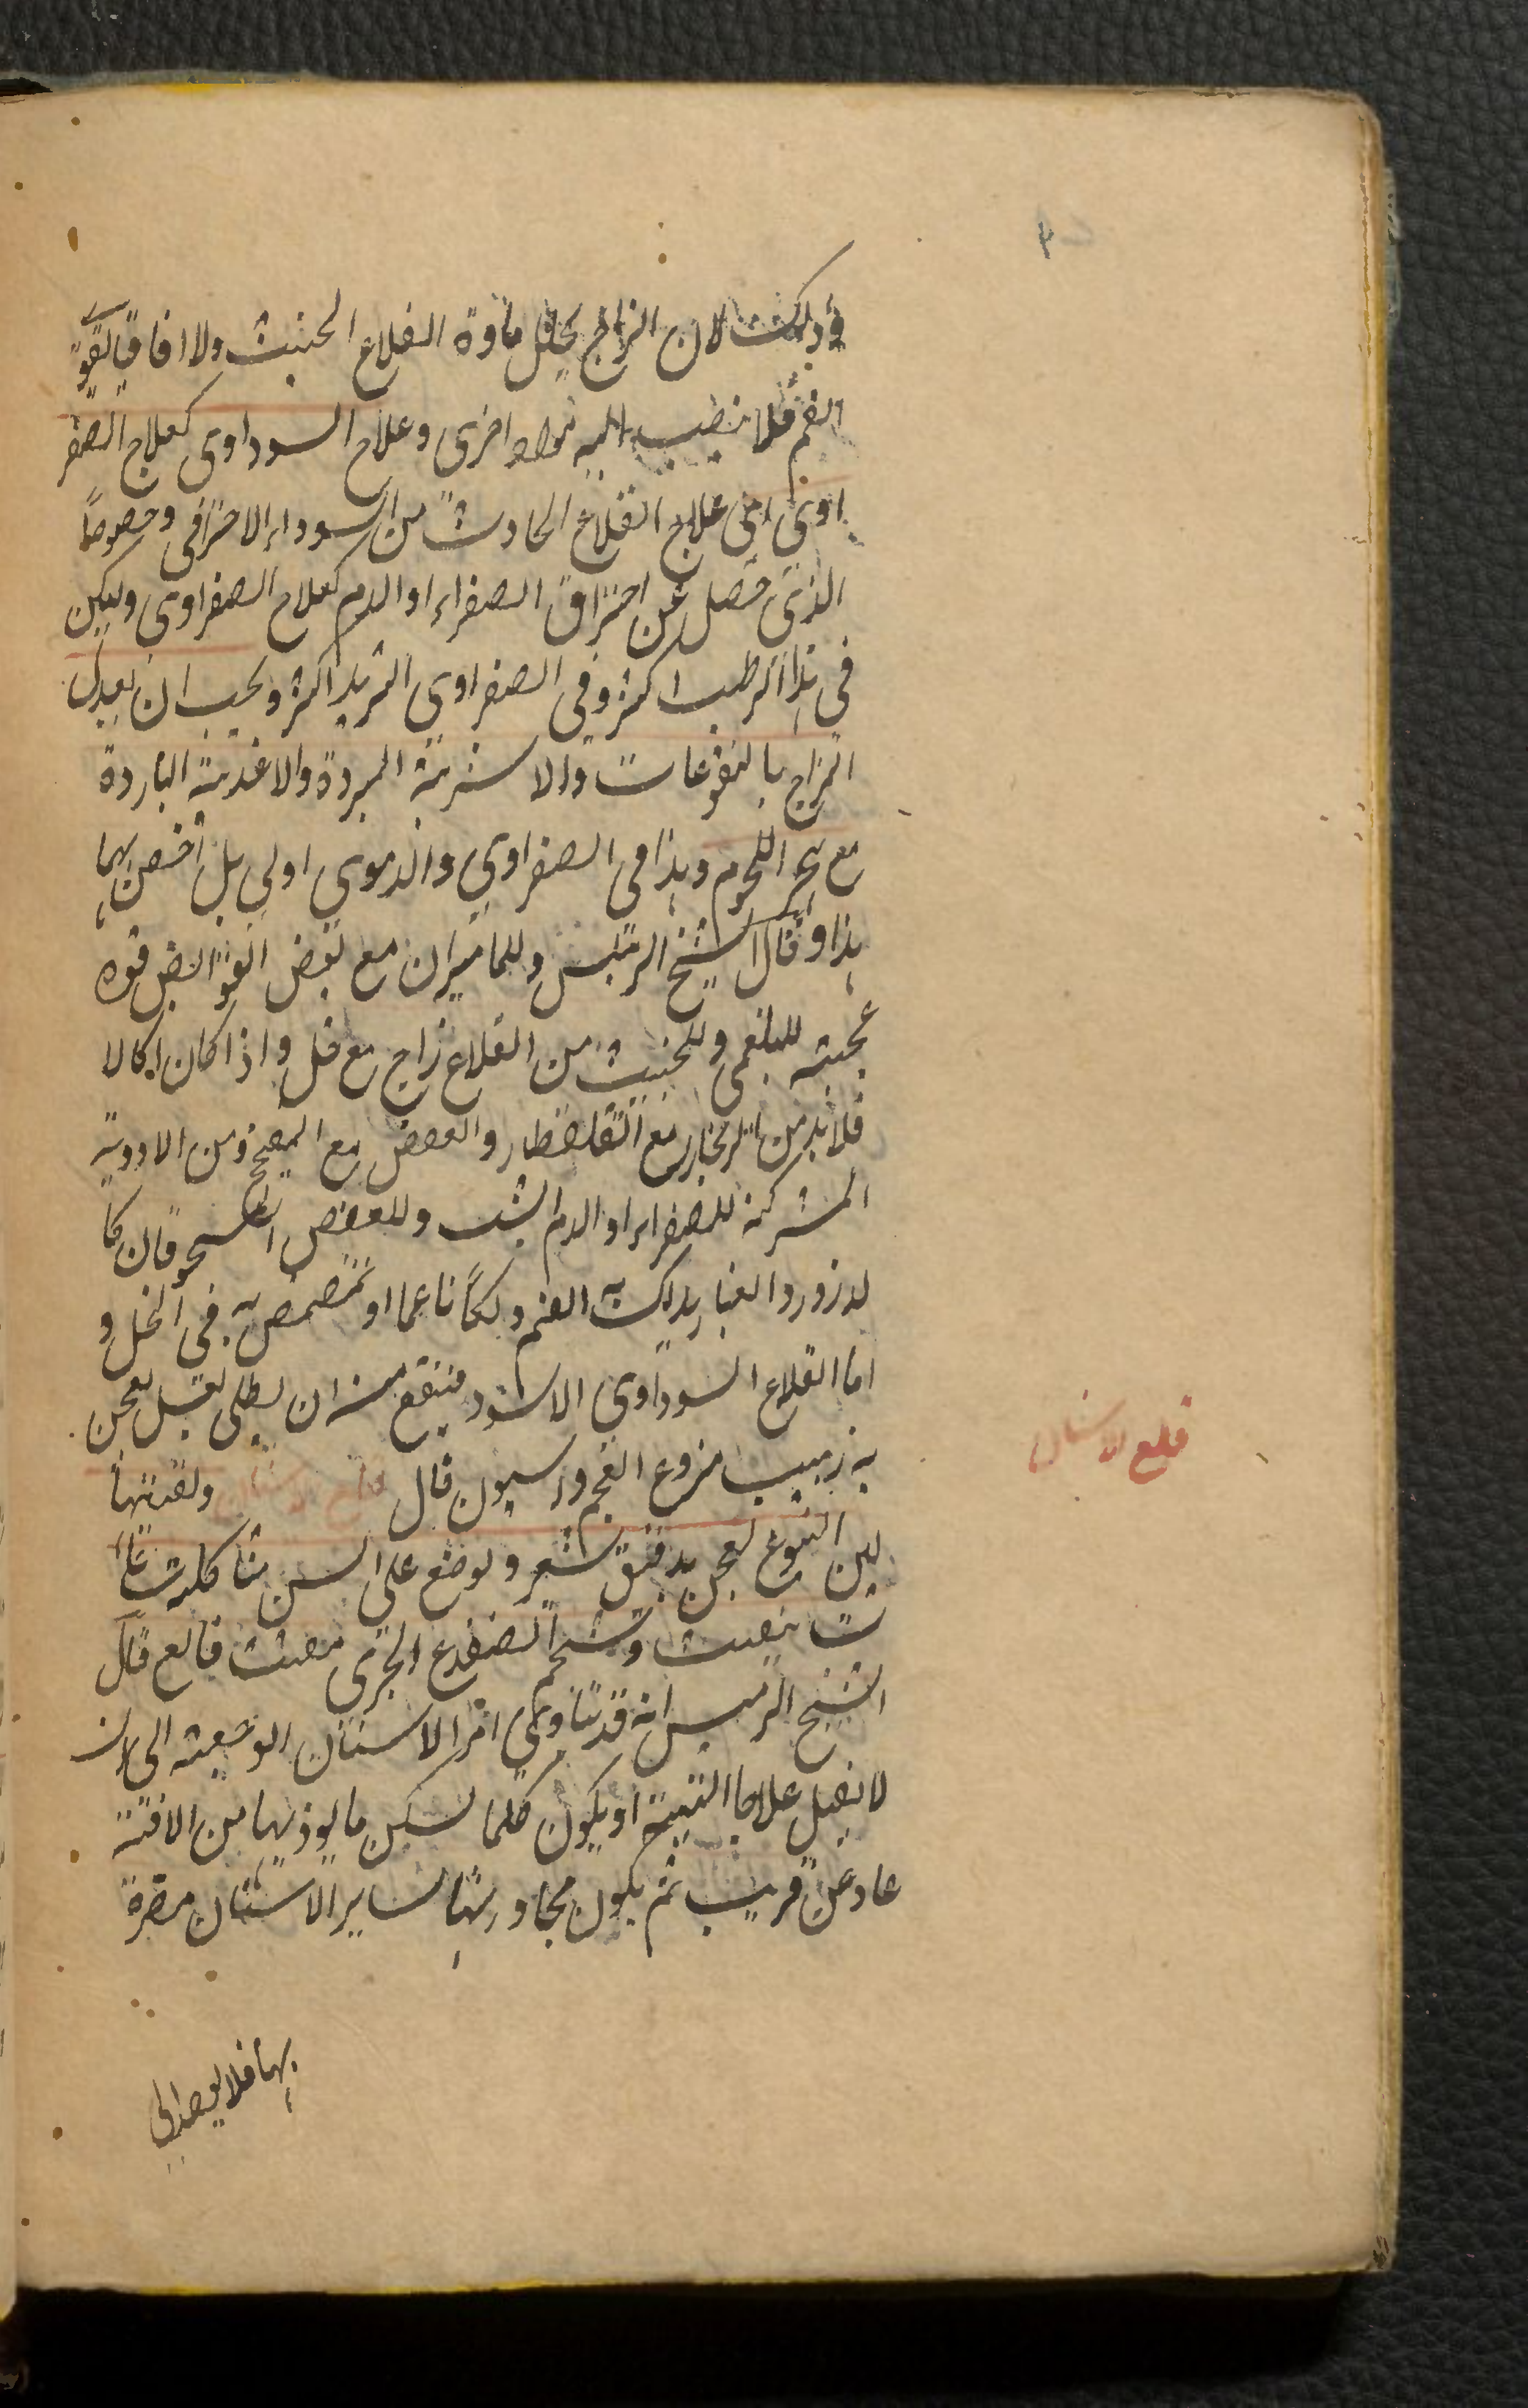 وذلك لان الزاج يحلل مادة القلاع الخبيث والاقاقيا يقوي
الفم فلا ينصب اليه مواد اخرى وعلاج السوداوى كعلاج الصفر
اوى اى علاج القلاع الحادث من السوداء الاحتراقى وخصوصاً
الذى حصل عن احتراق الصفراء او الدم كعلاج الصفراوى وليكن
فى هذا الترطيب اكثر وفى الصفراوى التبريد اكثر ويجب ان يعدل
المزاج بالنقوعات والاشربة المبردة والاغذية الباردة
مع هجر اللحوم وهذا فى الصفراوى والدموى اولى بل اخص بهما
هذا وقال الشيخ الرئيس وللماميران مع بعض القوابض قوة
عجيبة للبلغمى وللخبيث من القلاع زاج مع خل واذا كان اكالا
فلا بد من الزنجار مع القلقطار والعفص مع ومن الادوية
المشتركة للصفراء او الدم الشب وللعفص فان كا
لذرور والغبار يدلك به الفم دلكاً ناعما او يتمضمض به فى الخل و
اما القلاع السوداوى الاسود فينفع منه ان يطلى بعسل يعجن
به زبيب منزوع العجم وانيسون قال قلع الاسنان وتفتيتها
لبن اليتوع يعجن بدقيق شعير ويوضع على السن المتاكلة ساعا
ت يفتت وشحم الضفدع الشجرى مفتت قالع قال
الشيخ الرئيس انه قد يتاذى امر الاسنان الوجعة الى ان
لا يقبل علاجا البتة او يكون كلما سكن ما يوذيها من الافة
عاد عن قريب ثم يكون مجاورتها لساير الاسنان مضرة
بها فلا يوجد الى
قلع الاسنان